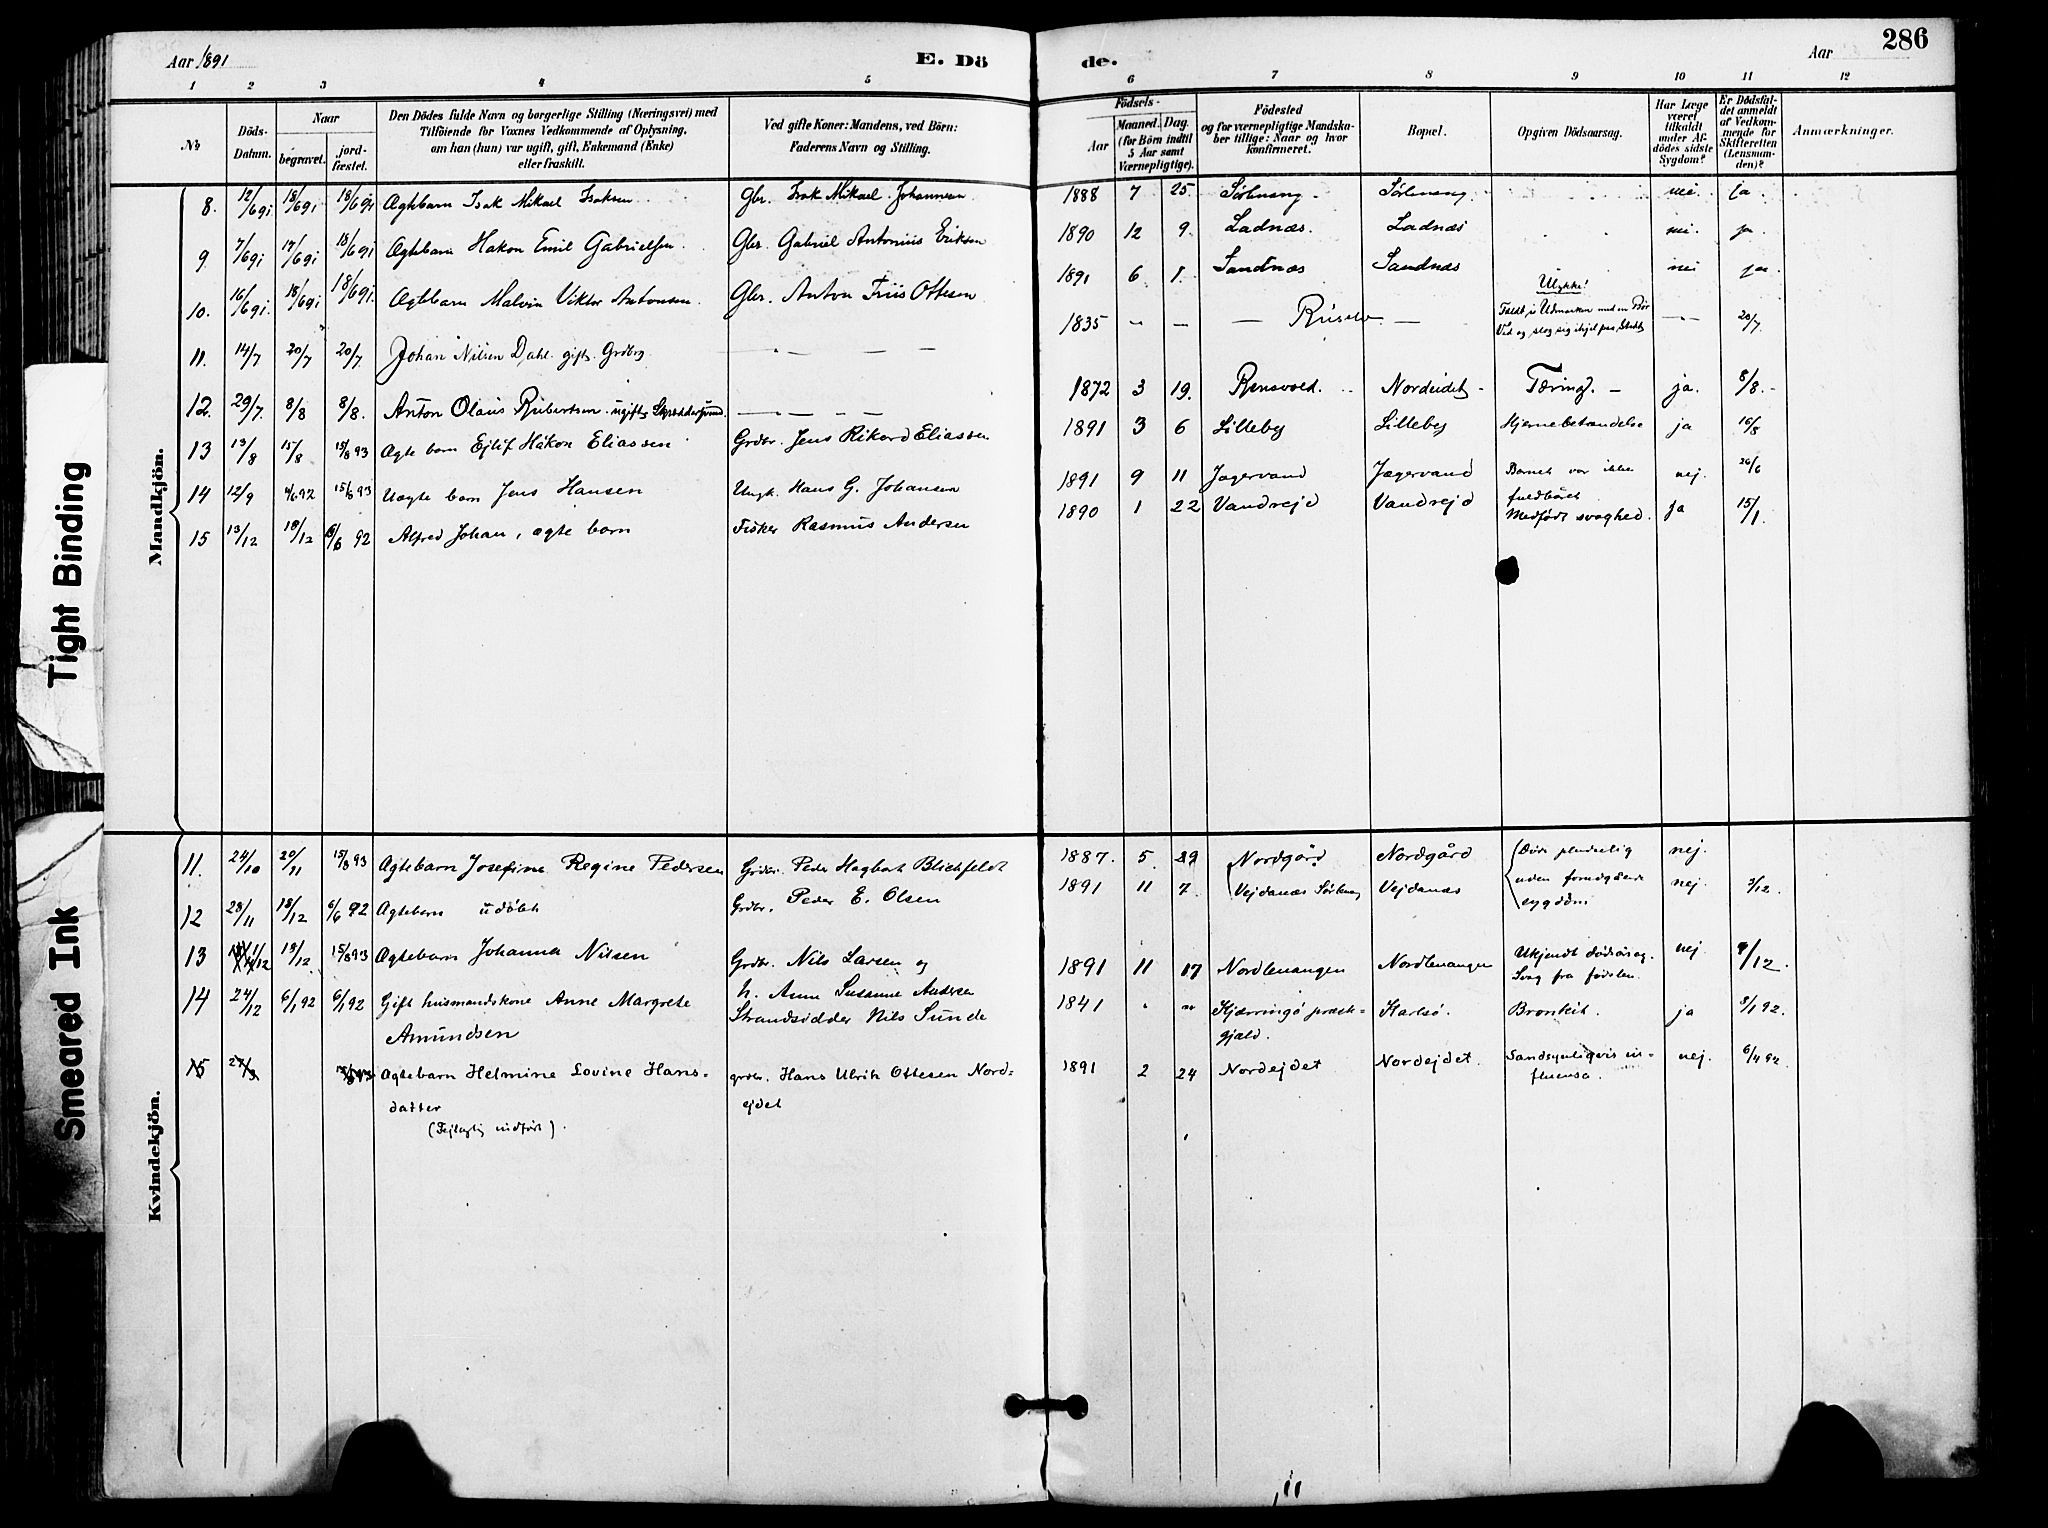 286
Aar 1891
E. Dö
de.
Aar
1 2 3 4 5 6 7 8 9 10 11 12
No
Döds-
Datum.
Naar
begravet.
jord-
fæstet.
Den Dödes fulde Navn og borgerlige Stilling (Næringsvei) med
Tilföiende for Voxnes Vedkommende af Oplysning,
om han (hun) var ugift, gift, Enkemand (Enke)
eller fraskilt.
Ved gifte Koner: Mandens, ved Börn:
Faderens Navn og Stilling.
Födsels-
Aar
Maaned.
Dag.
(for Börn indtil
5 Aar samt
Værnepligtige).
Födested
og for værnepligtige Mandska-
ber tillige: Naar og hvor
konfirmeret.
Bopæl.
Opgiven Dödsaarsag.
Har Læge
været
tilkaldt
under Af-
dödes sidste
Sygdom?
Er Dödsfal-
det anmeldt
af Vedkom-
mende for
Skifteretten
(Lensman-
den)?
Anmærkninger.
Mandkjön.
8. 12/6 91 18/6 91 18/6 91 Ægtebarn Isak Mikael Isaksen Gbr. Isak Mikael Johannesen 1888 7 25 Sørlenang Sørlenang nei. ja.
9. 7/6 91 17/6 91 18/6 91 Ægtebarn Hakon Emil Gabrielsen Gbr. Gabriel Antonius Eriksen 1890 12 9 Ladnæs. Ladnæs nei. ja
10. 16/6 91. 18/6 91 18/6 91. Ægtebarn Malvin Viktor Antonsen. Gbr. Anton Friis Ottesen 1891 6 1 Sandnæs Sandnæs nei ja
Ulykke!
11. 14/7 20/7 20/7. Johan Nilsen Dahl. gift. Grdbrg. — — — 1835 — — — — Faldt i Udmarken med en Bör
Ved og slog sig ihjel paa Stedet — 20/7.
12. 29/7. 8/8 8/8. Anton Olaus Robertsen. ugift — — — 1872 3 19. Nordeidet Tæring. — ja. 8/8.
13 13/8 15/8 15/8 93 Ægte barn Ejlif Håkon Eliassen Grdbr. Jens Rikard Eliassen 1891 3 6 Lilleby Lilleby Hjernebetændelse ja 16/8
14 12/9 4/6 92 15/8 93 Uægte barn Jens Hansen Ungk. Hans G. Johansen 1891 9 11 Jægervand Jægervand Barnet var ikke
fuldbåret nej. 26/6
15 13/12 18/12 6/6 92 Alfred Johan, ægte barn Fisker Rasmus Andersen 1890 1 22 Vandrejd Vandrejd Medfødt svaghed. ja 15/1.
Kvindekjön.
11. 24/10 20/11 15/8 93 Ægtebarn Josefine Regine Pedersen Grdbr. Peder Hagbart Blichfeldt 1887. 5. 29 Nordgård Nordgård Døde pludselig
uden foregående
sygdom nej.
12 23/11 18/12 6/6 92 Ægtebarn udøbt Grdbr. Peder E. Olsen 1891 11 7 Vejdanæs Sørlenang Vejdanæs nej 3/12.
13 1/12 19/12 15/8 93 Ægtebarn Johanna Nilsen Grdbr. Nils Larsen og
h. Anne Susanne Andersen 1891 11 17 Nordlenangen Nordlenangen Ukjendt dødsårsag.
Svag fra fødslen. nej. 9/12.
14 24/12 6/1 92 6/1 92 Gift husmandskone Anne Margrete
Amundsen Strandsidder Nils Sunde 1841 " " Kjærringø præste-
gjæld. Karlsø. Bronkit. ja 3/1 92.
15 27/3 15/8 93 Ægtebarn Helmine Lovine Hans-
datter
(Fejlagtig indført). grdbr. Hans Ulrik Ottesen Nord-
ejdet 1891 2 24 Nordejdet Nordejdet. Sandsynligvis in-
fluensa. nej. 6/4 92
Tight Binding
Smeared Ink